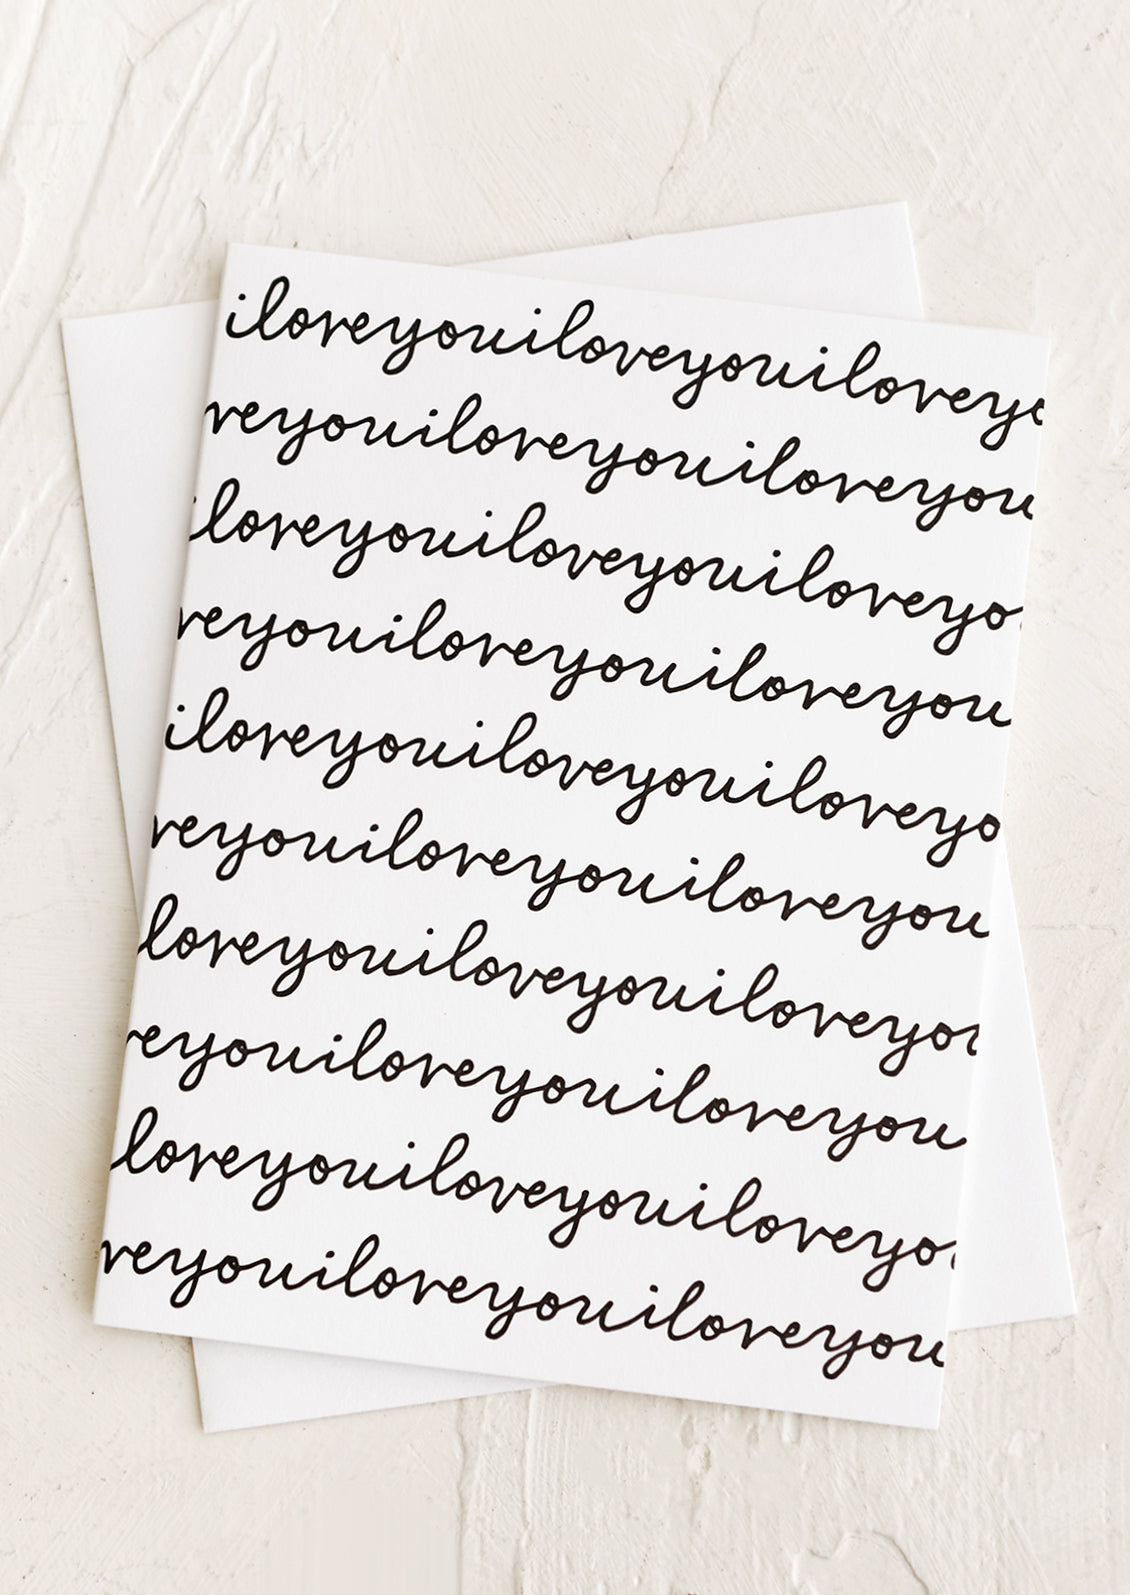 iloveyouiloveyouiloveyo
veyouiloveyouiloveyou
iloveyouiloveyouiloveyo
veyouiloveyouiloveyou
iloveyouiloveyouiloveyo
veyouiloveyouiloveyou
loveyouiloveyouiloveyou
veyouiloveyouiloveyou
loveyouiloveyouiloveyo
veyouiloveyouiloveyou